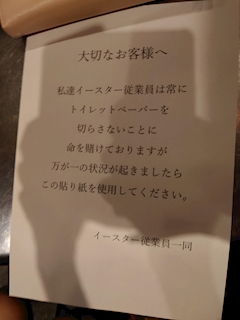 大切なお客様へ
私達イースター従業員は常に
トイレットペーパーを
切らさないことに
命を賭けておりますが
万が一の状況が起きましたら
この貼り紙を使用してください。
イースター従業員一同